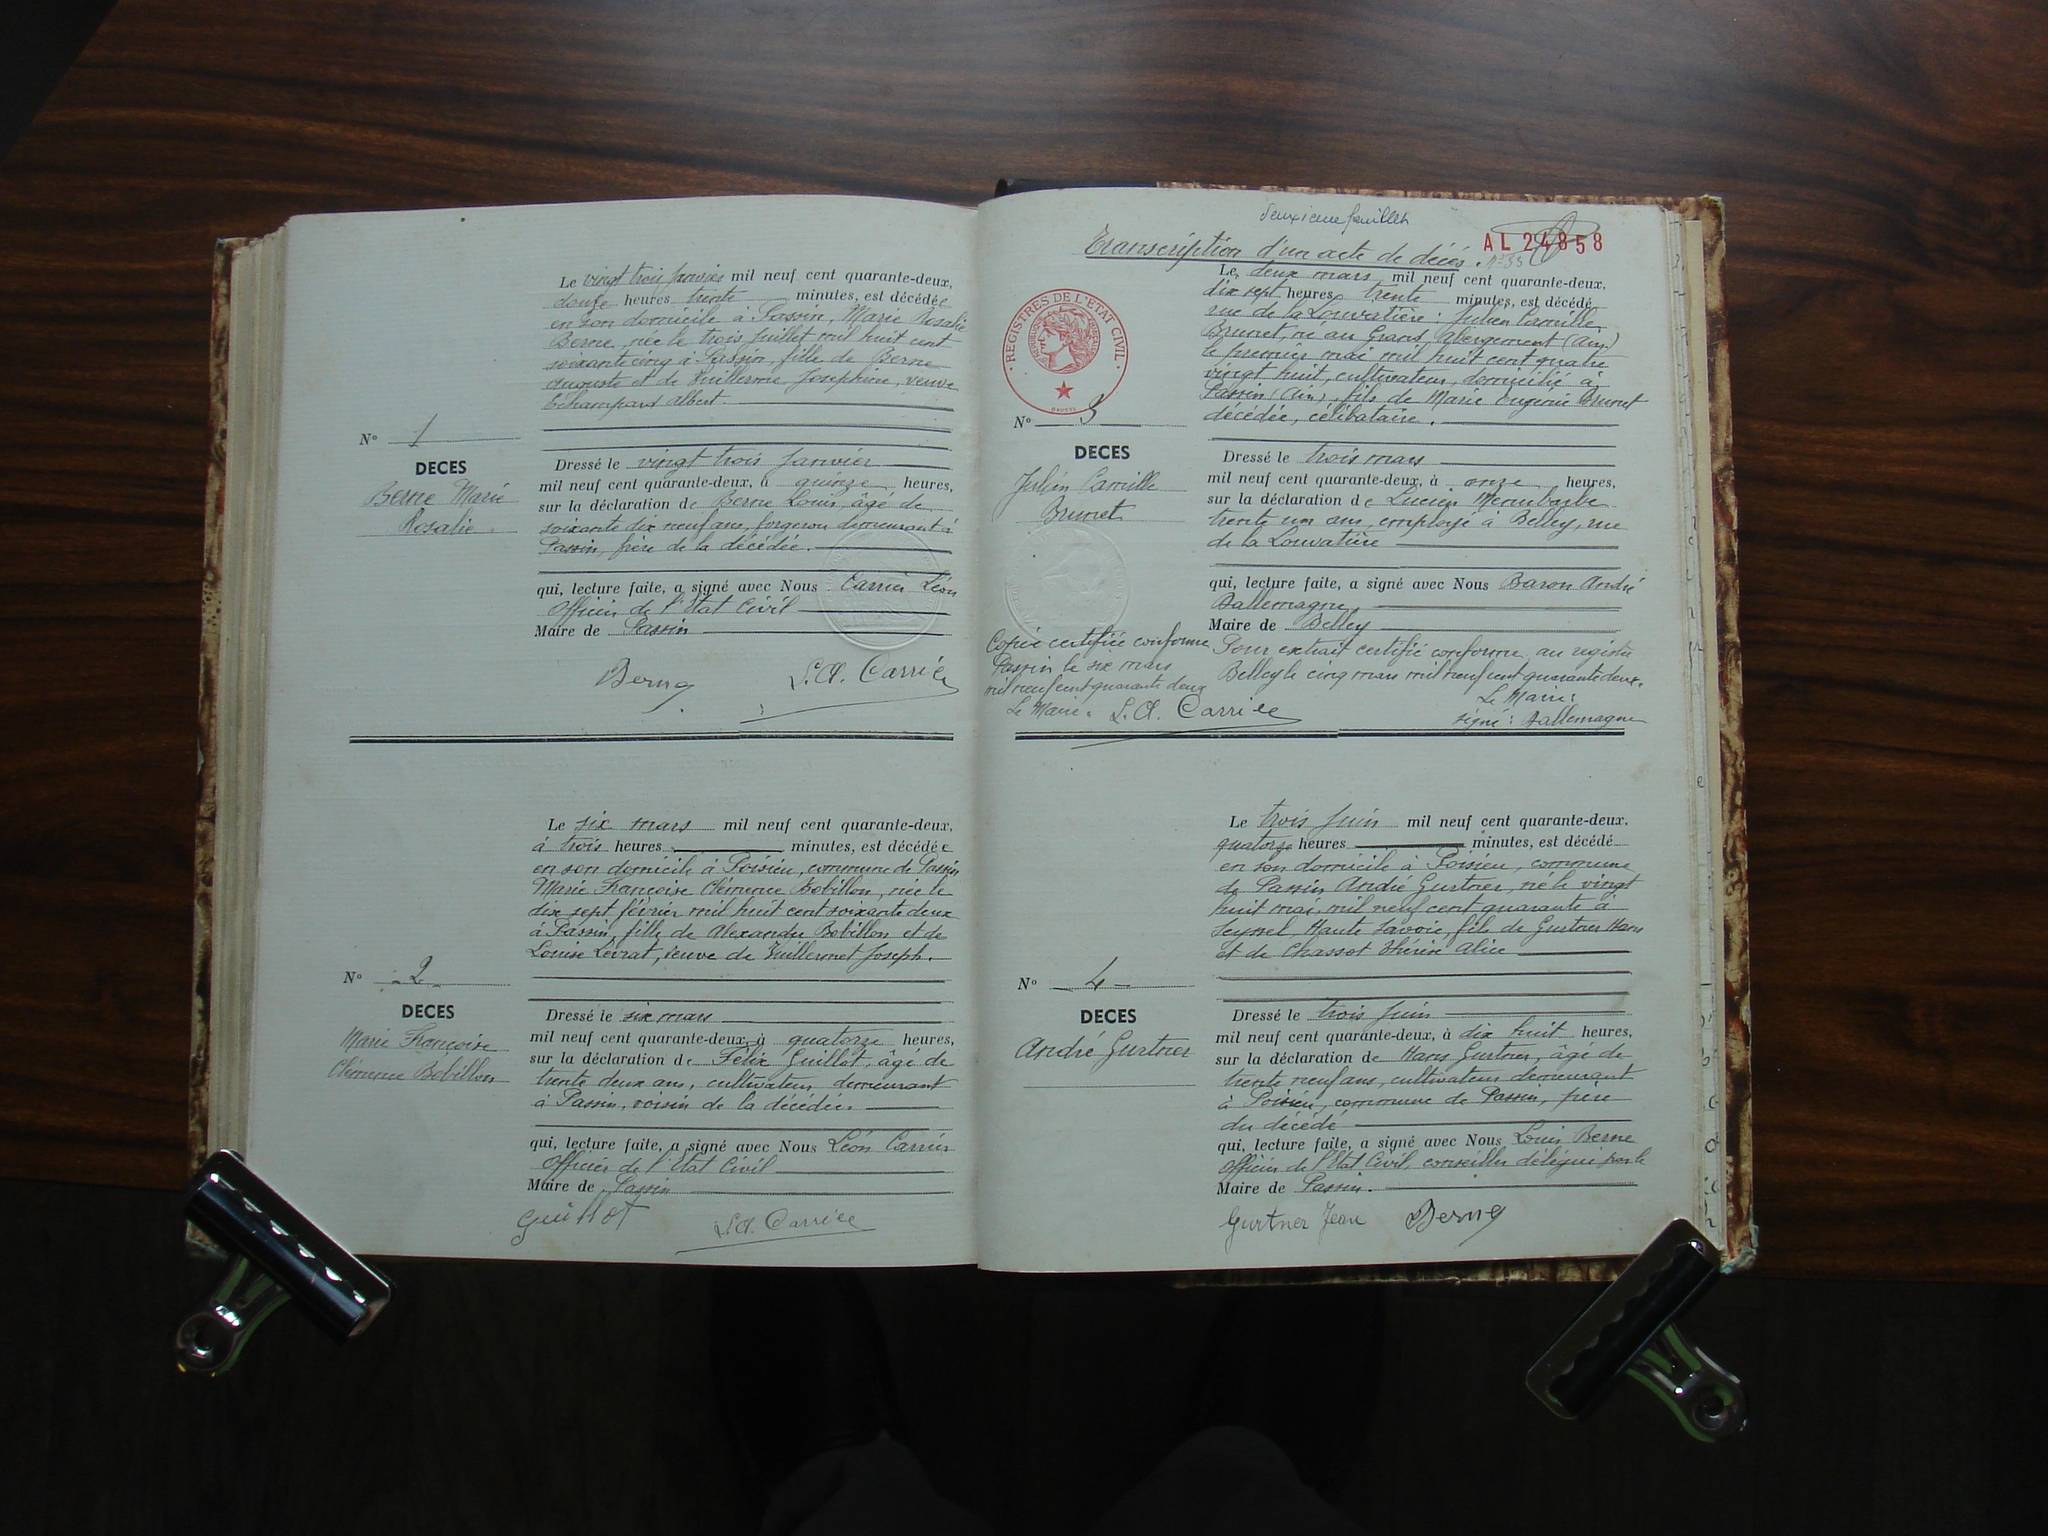 Le vingt trois Janvier mil neuf cent quarante-deux,
douze heures trente minutes, est décédée
en son domicile à Passin, Marie Rosalie
Berne, née le trois Juillet mil huit cent
soixante cinq à Passin, fille de Berne
Auguste et de Vuillerme Joséphine, veuve
Echampard Albert.
N° 1
DECES
Berne Marie
Rosalie.
Dressé le vingt trois Janvier
mil neuf cent quarante-deux, à quinze heures,
sur la déclaration de Berne Louis, âgé de
soixante dix neuf ans, forgeron demeurant à
Passin, frère de la décédée.
qui, lecture faite, a signé avec Nous Carrier Léon
Officier de l'Etat Civil
Maire de Passin
Berne
L.A. Carrier
Le six mars mil neuf cent quarante-deux,
à trois heures minutes, est décédée
en son domicile à Poisieu, commune de Passin
Marie Françoise Clémence Bobillon, née le
dix sept février mil huit cent soixante deux
à Passin, fille de Alexandre Bobillon et de
Louise Levrat, veuve de Vuillermet Joseph.
N° 2
DECES
Marie Françoise
Clémence Bobillon
Dressé le six mars
mil neuf cent quarante-deux à quatorze heures,
sur la déclaration de Félix Guillot, âgé de
trente deux ans, cultivateur demeurant
à Passin, voisin de la décédée.
qui, lecture faite, a signé avec Nous Léon Carrier
Officier de l'Etat Civil
Maire de Passin
Guillot
L.A. Carrier
deuxième feuillet
Transcription d'un acte de décès.
AL 24858
REGISTRES DE L'ETAT CIVIL
Le, deux mars mil neuf cent quarante-deux,
dix sept heures trente minutes, est décédé
rue de la Louvatière : Julien Camille
Brunet, né au Grand Abergement (Ain)
le premier mai mil huit cent quatre
vingt huit, cultivateur, domicilié à
Passin (Ain), fils de Marie Eugénie Brunet
décédée, célibataire.
N° 3
DECES
Julien Camille
Brunet
Dressé le trois mars
mil neuf cent quarante-deux, à onze heures,
sur la déclaration de Lucien
trente un ans, employé à Belley, rue
de la Louvatière
qui, lecture faite, a signé avec Nous Baron André
Dallemagne,
Maire de Belley
Pour extrait certifié conforme au registre
Belley le cinq mars mil neuf cent quarante deux.
Le Maire:
signé : Dallemagne
Copie certifiée conforme
Passin le six mars
mil neuf cent quarante deux
Le Maire. L.A. Carrier
Le trois Juin mil neuf cent quarante-deux,
quatorze heures minutes, est décédé
en son domicile à Poisieu, commune
de Passin André Gurtner, né le vingt
huit mai, mil neuf cent quarante à
Seyssel, Haute Savoie, fils de Gurtner Hans
et de Chassot Alice
N° 4
DECES
André Gurtner
Dressé le trois Juin
mil neuf cent quarante-deux, à dix huit heures,
sur la déclaration de Hans Gurtner, âgé de
trente neuf ans, cultivateur demeurant
à Poisieu, commune de Passin, père
du décédé
qui, lecture faite, a signé avec Nous Louis Berne
Officier de l'Etat Civil, conseiller délégué par le
Maire de Passin.
Gurtner Jean Berne